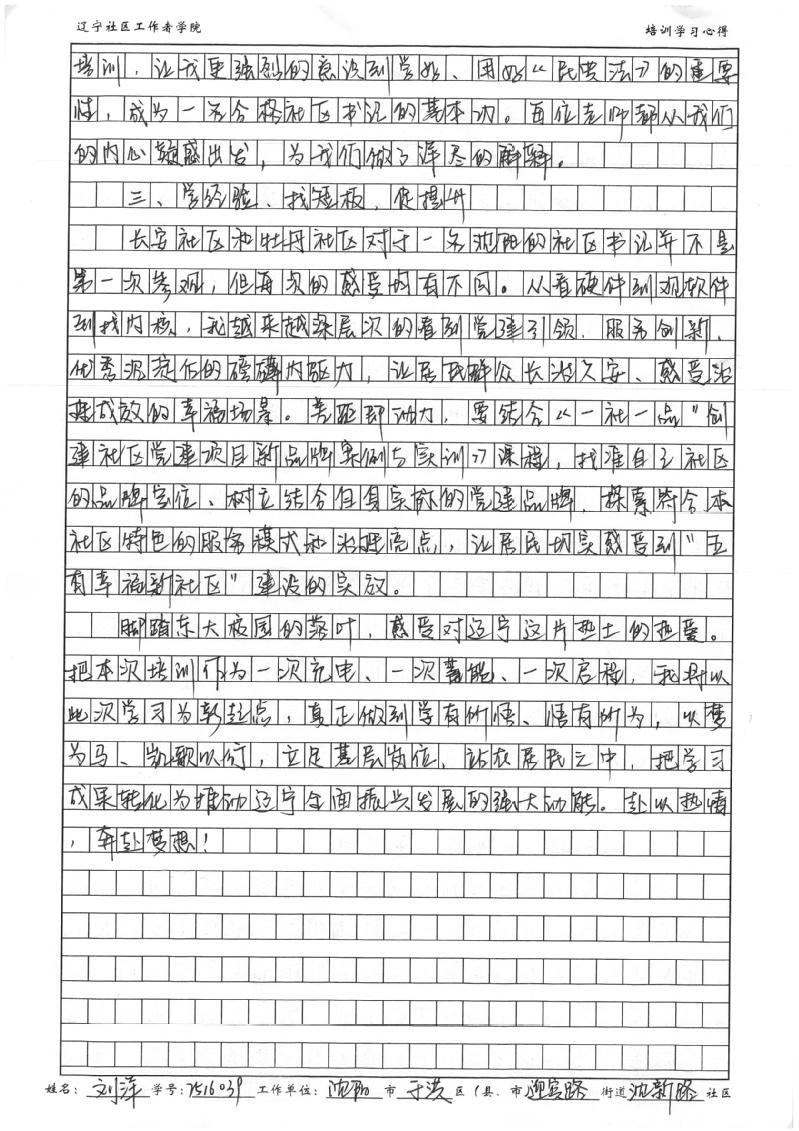 辽宁社区工作者学院 培训学习心得
培训，让我更强烈的意识到学好、用好《民典法》的重要
性，成为一名合格社区书记的基本功。两位老师都从我们
的内心情感出发，为我们做了详尽的解释。
三、学经验、找短板、促提升
长安社区和牡丹社区对于一名沈阳的社区书记并不是
第一次参观，但再次的感受均有不同。从看硬件到观软件
到找内核，我越来越深层次的看到党建引领、服务创新、
优秀沉淀后的磅礴内驱力，让居民群众长治久安、感受治
理成效的幸福场景。差距即动力，要结合《"一社一品"创
建社区党建项目新品牌案例与实训》课程，找准自己社区
的品牌定位、树立结合自身实际的党建品牌，探索符合本
社区特色的服务模式和治理亮点，让居民切实感受到"五
有幸福新社区"建设的实效。
脚踏东大校园的落叶，感受对辽宁这片热土的热爱。
把本次培训作为一次充电、一次蓄能、一次启程，我将以
此次学习为新起点，真正做到学有所悟、悟有所为，以梦
为马、凯歌以行，立足基层岗位，站在居民之中，把学习
成果转化为推动辽宁全面振兴发展的强大动能。赴以热情
，奔赴梦想！
姓名：刘萍 学号：2516039 工作单位：沈阳 市 于洪 区（县、市 迎宾路 街道 沈新路 社区